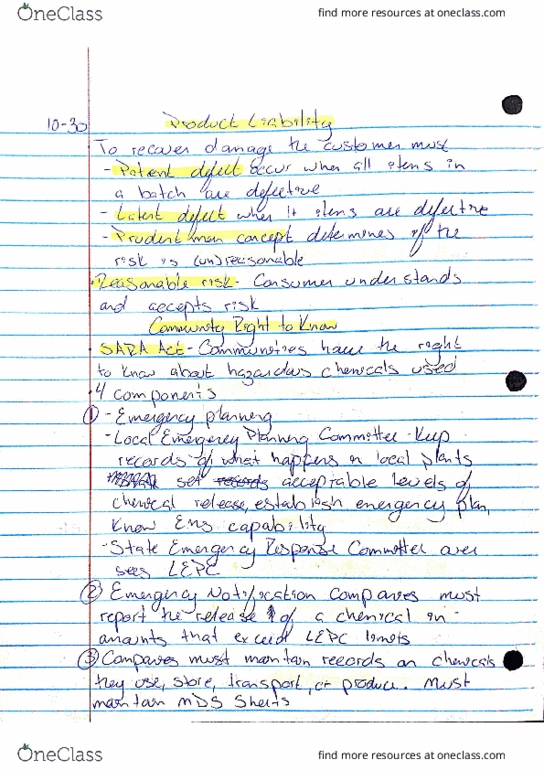 OneClass
find more resources at oneclass.com
10-30 Product Liability
To recover damage the customer must
- Patient defect occur when all items in
a batch are defective
- Latent defect when 1+ items are defective
- Prudent man concept determines if the
risk is (un)reasonable
· Reasonable risk - Consumer understands
and accepts risk
Community Right to Know
· SARA Act - Communities have the right
to know about hazardous chemicals used
· 4 components
① - Emergency planning
- Local Emergency Planning Committee - Keep
records of what happens in local plants
set records acceptable levels of
chemical release, establish emergency plan,
Know EMS capability
- State Emergency Response Committee over
sees LEPC
② Emergency Notification Companies must
report the release of a chemical in
amounts that exceed LEPC limits
③ Companies must maintain records on chemicals
they use, store, transport, or produce. Must
maintain MDS Sheets
OneClass
find more resources at oneclass.com